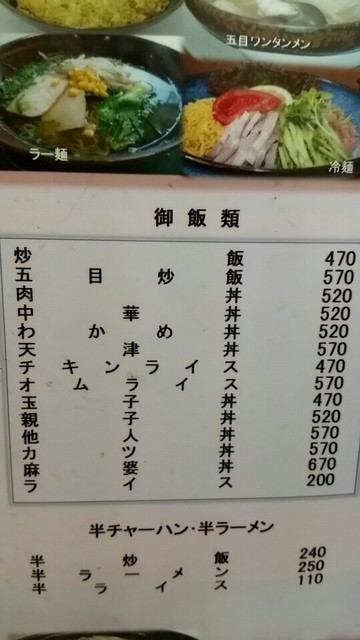 五目ワンタンメン
ラー麺
冷麺
御飯類
炒飯 470
五目炒飯 570
肉丼 520
中華丼 520
わかめ丼 520
天津丼 570
チキンライス 470
オムライス 570
玉子丼 470
親子丼 520
他人丼 570
カツ丼 570
麻婆丼 670
ライス 200
半チャーハン・半ラーメン
半炒飯 240
半ラーメン 250
半ライス 110